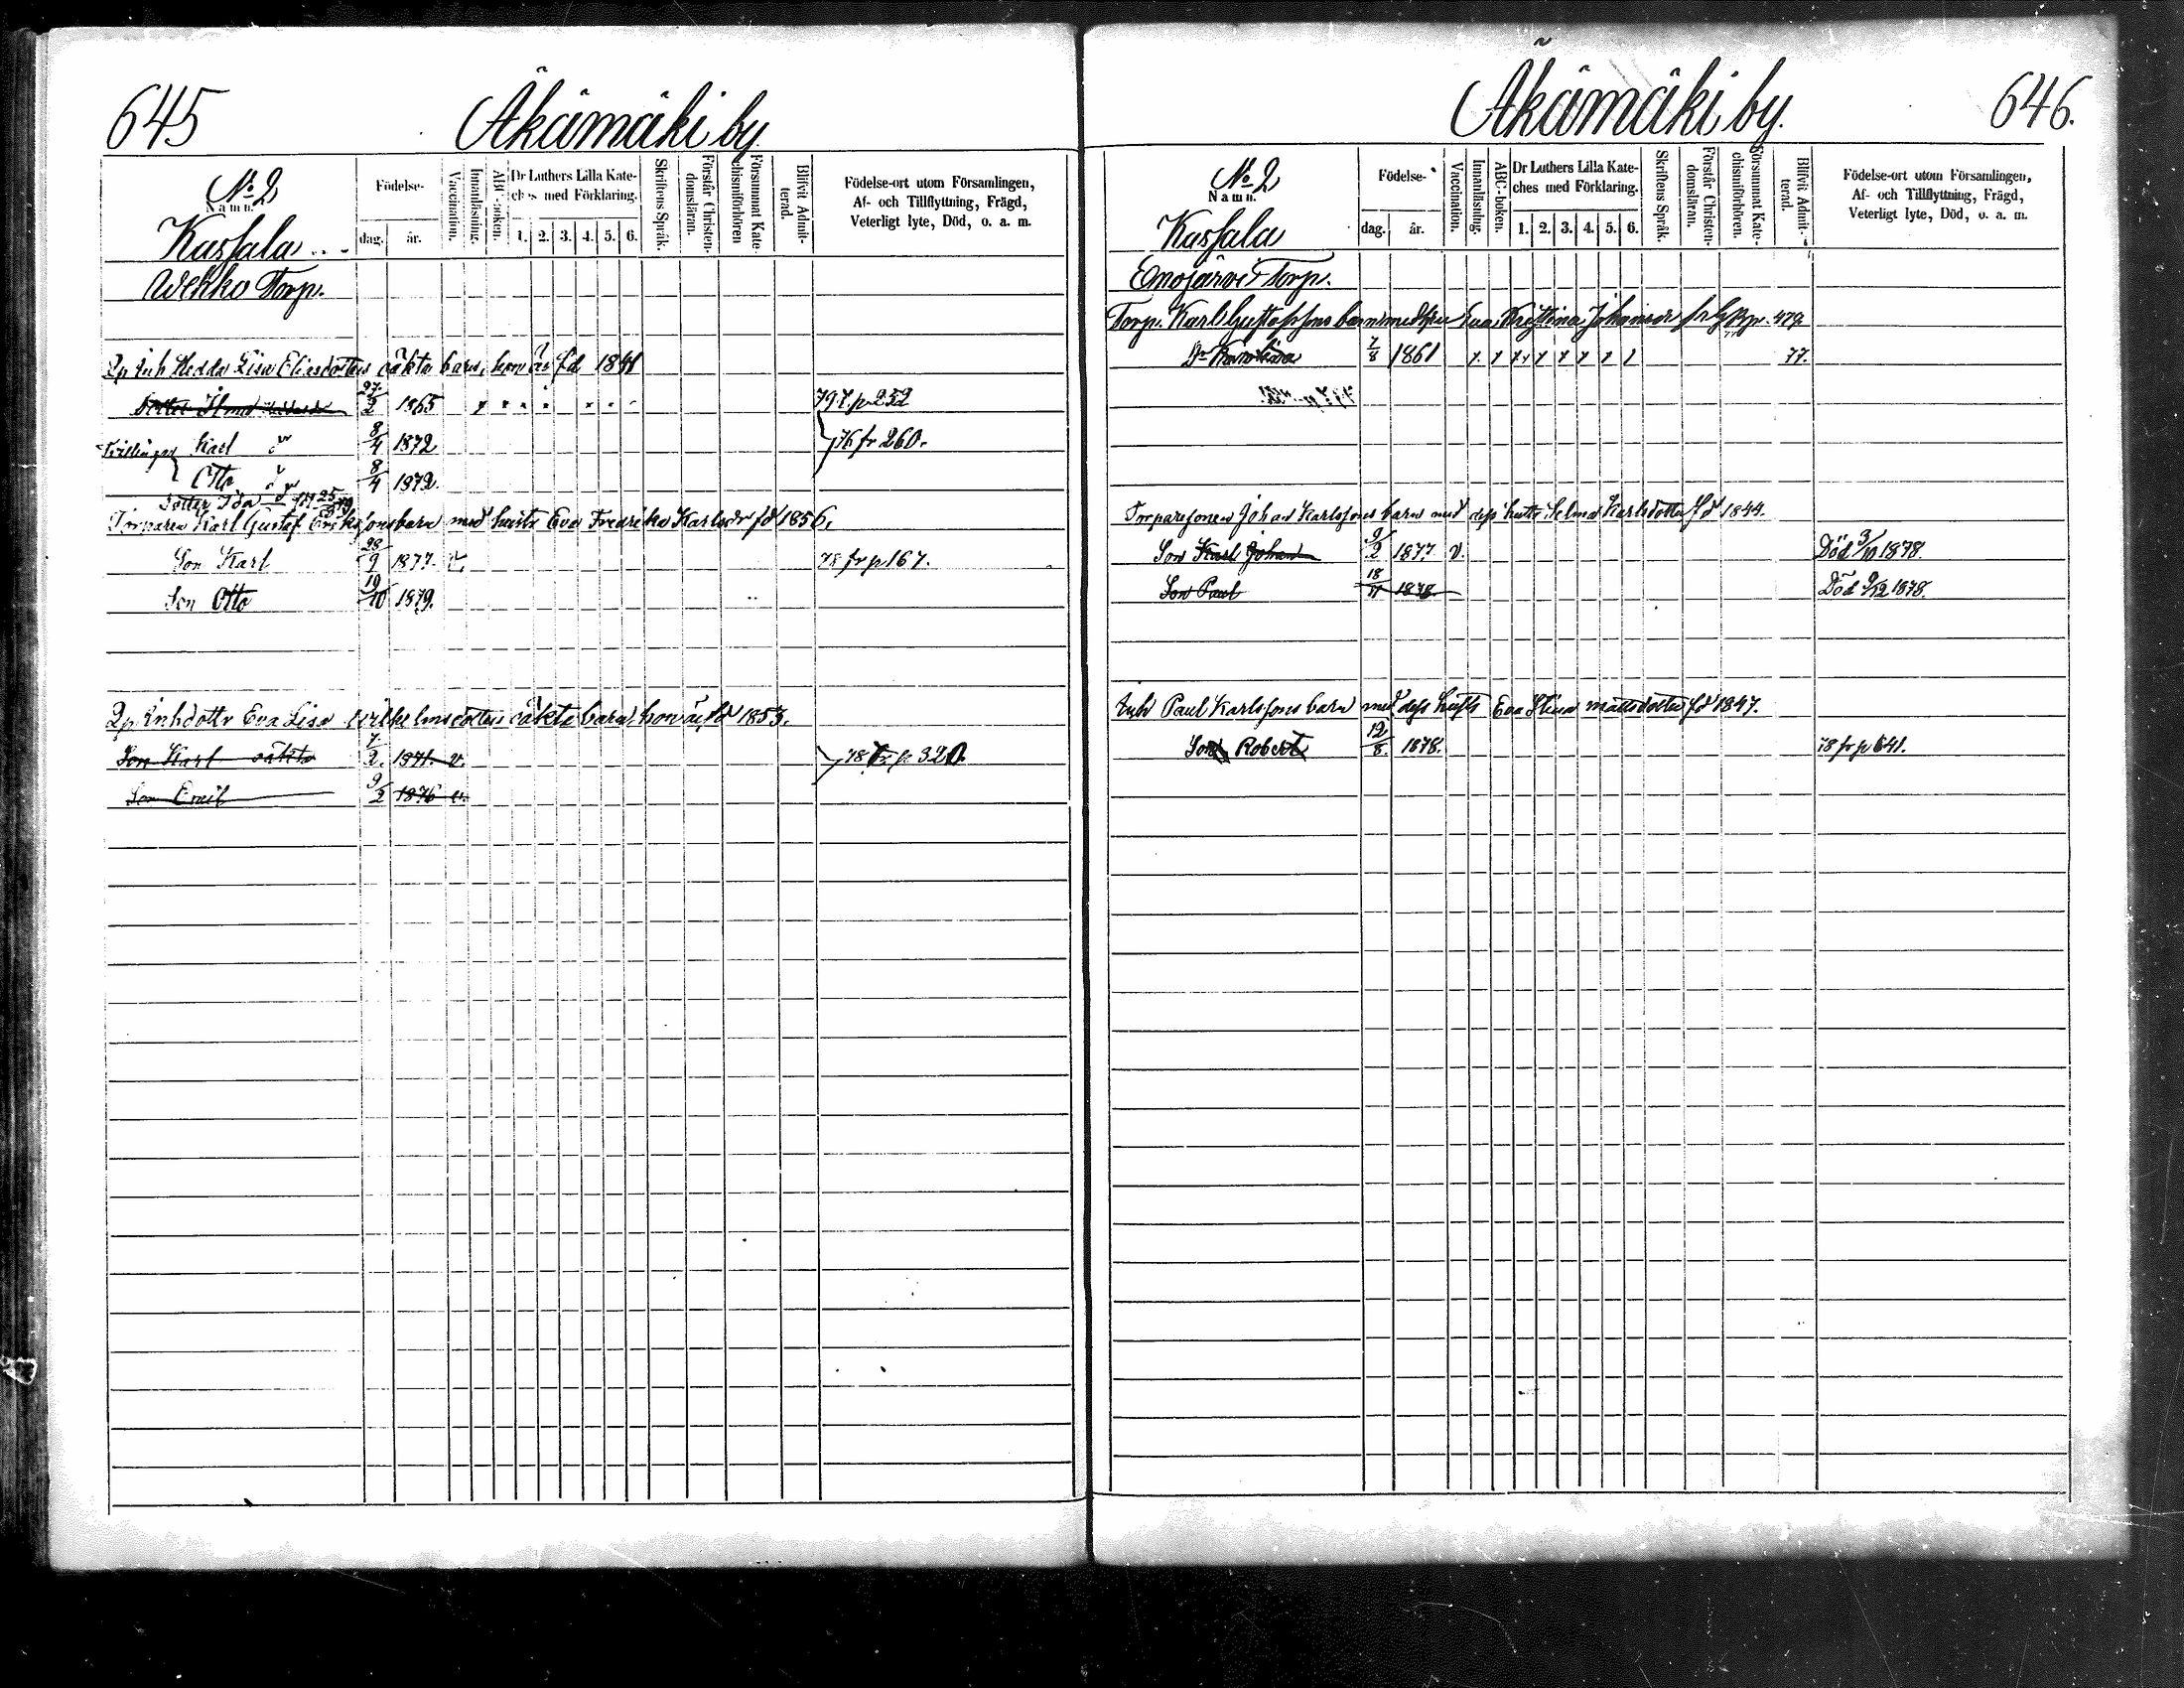 645
Äkämäki by.
No 2
Namn.
Kassala
Födelse-
dag.
år.
Vaccination.
Innanläsning.
ABC-boken.
Dr Luthers Lilla Kate-
ches med Förklaring.
1. 2. 3. 4. 5. 6.
Skriftens Språk.
Förstår Christen-
domsläran.
Försummat Kate-
chismiförhören
Blifvit Admit-
terad.
Födelse-ort utom Församlingen,
Af- och Tillflyttning, Frägd,
Veterligt lyte, Död, o. a. m.
Wehko Torp.
Inh Hedda Lisa Eliedotters oäkta barn, hon är fd 1841
27/2 1865
Tvillingar Karl 8/4 1872 76 fr 260.
Otto 8/4 1872.
Dotter Ida
Torparen Karl Gustaf Erikssons barn med hustr Eva Fredrika Karlsdr fd 1856.
Son Karl 28/9 1877. v. 78 fr p 167.
Son Otto 19/10 1879.
Inhdottr Eva Lisa Wilhelmsdotters oäkta barn, hon är fd 1853.
Son Karl oäkta 7/2. 1871. v. 78 fr p 320.
Son Emil 9/2 1876 v.
646.
Äkämäki by.
No 2
Namn.
Kassala
Födelse-
dag.
år.
Vaccination.
Innanläsning.
ABC-boken.
Dr Luthers Lilla Kate-
ches med Förklaring.
1. 2. 3. 4. 5. 6.
Skriftens Språk.
Förstår Christen-
domsläran.
Försummat Kate-
chismiförhören.
Blifvit Admit-
terad.
Födelse-ort utom Församlingen,
Af- och Tillflyttning, Frägd,
Veterligt lyte, Död, o. a. m.
Enojärvi Torp.
Torp. Karl Gustafssons barn med Eva Kristina Johansdr 479
Dr Karolina 7/8 1861 77.
Torparesonen Johan Karlssons barn med dess hustr. Selma Karlsdotter fd 1844.
Son Karl Johan 9/2 1877 v. Död 3/10 1878.
Son Paul 18/11 1878. Död 9/12 1878.
Inh Paul Karlssons barn med dess hustr Eva Stina Mattsdotter fd 1847.
Son Robert 12/8. 1878. 78 fr p 641.